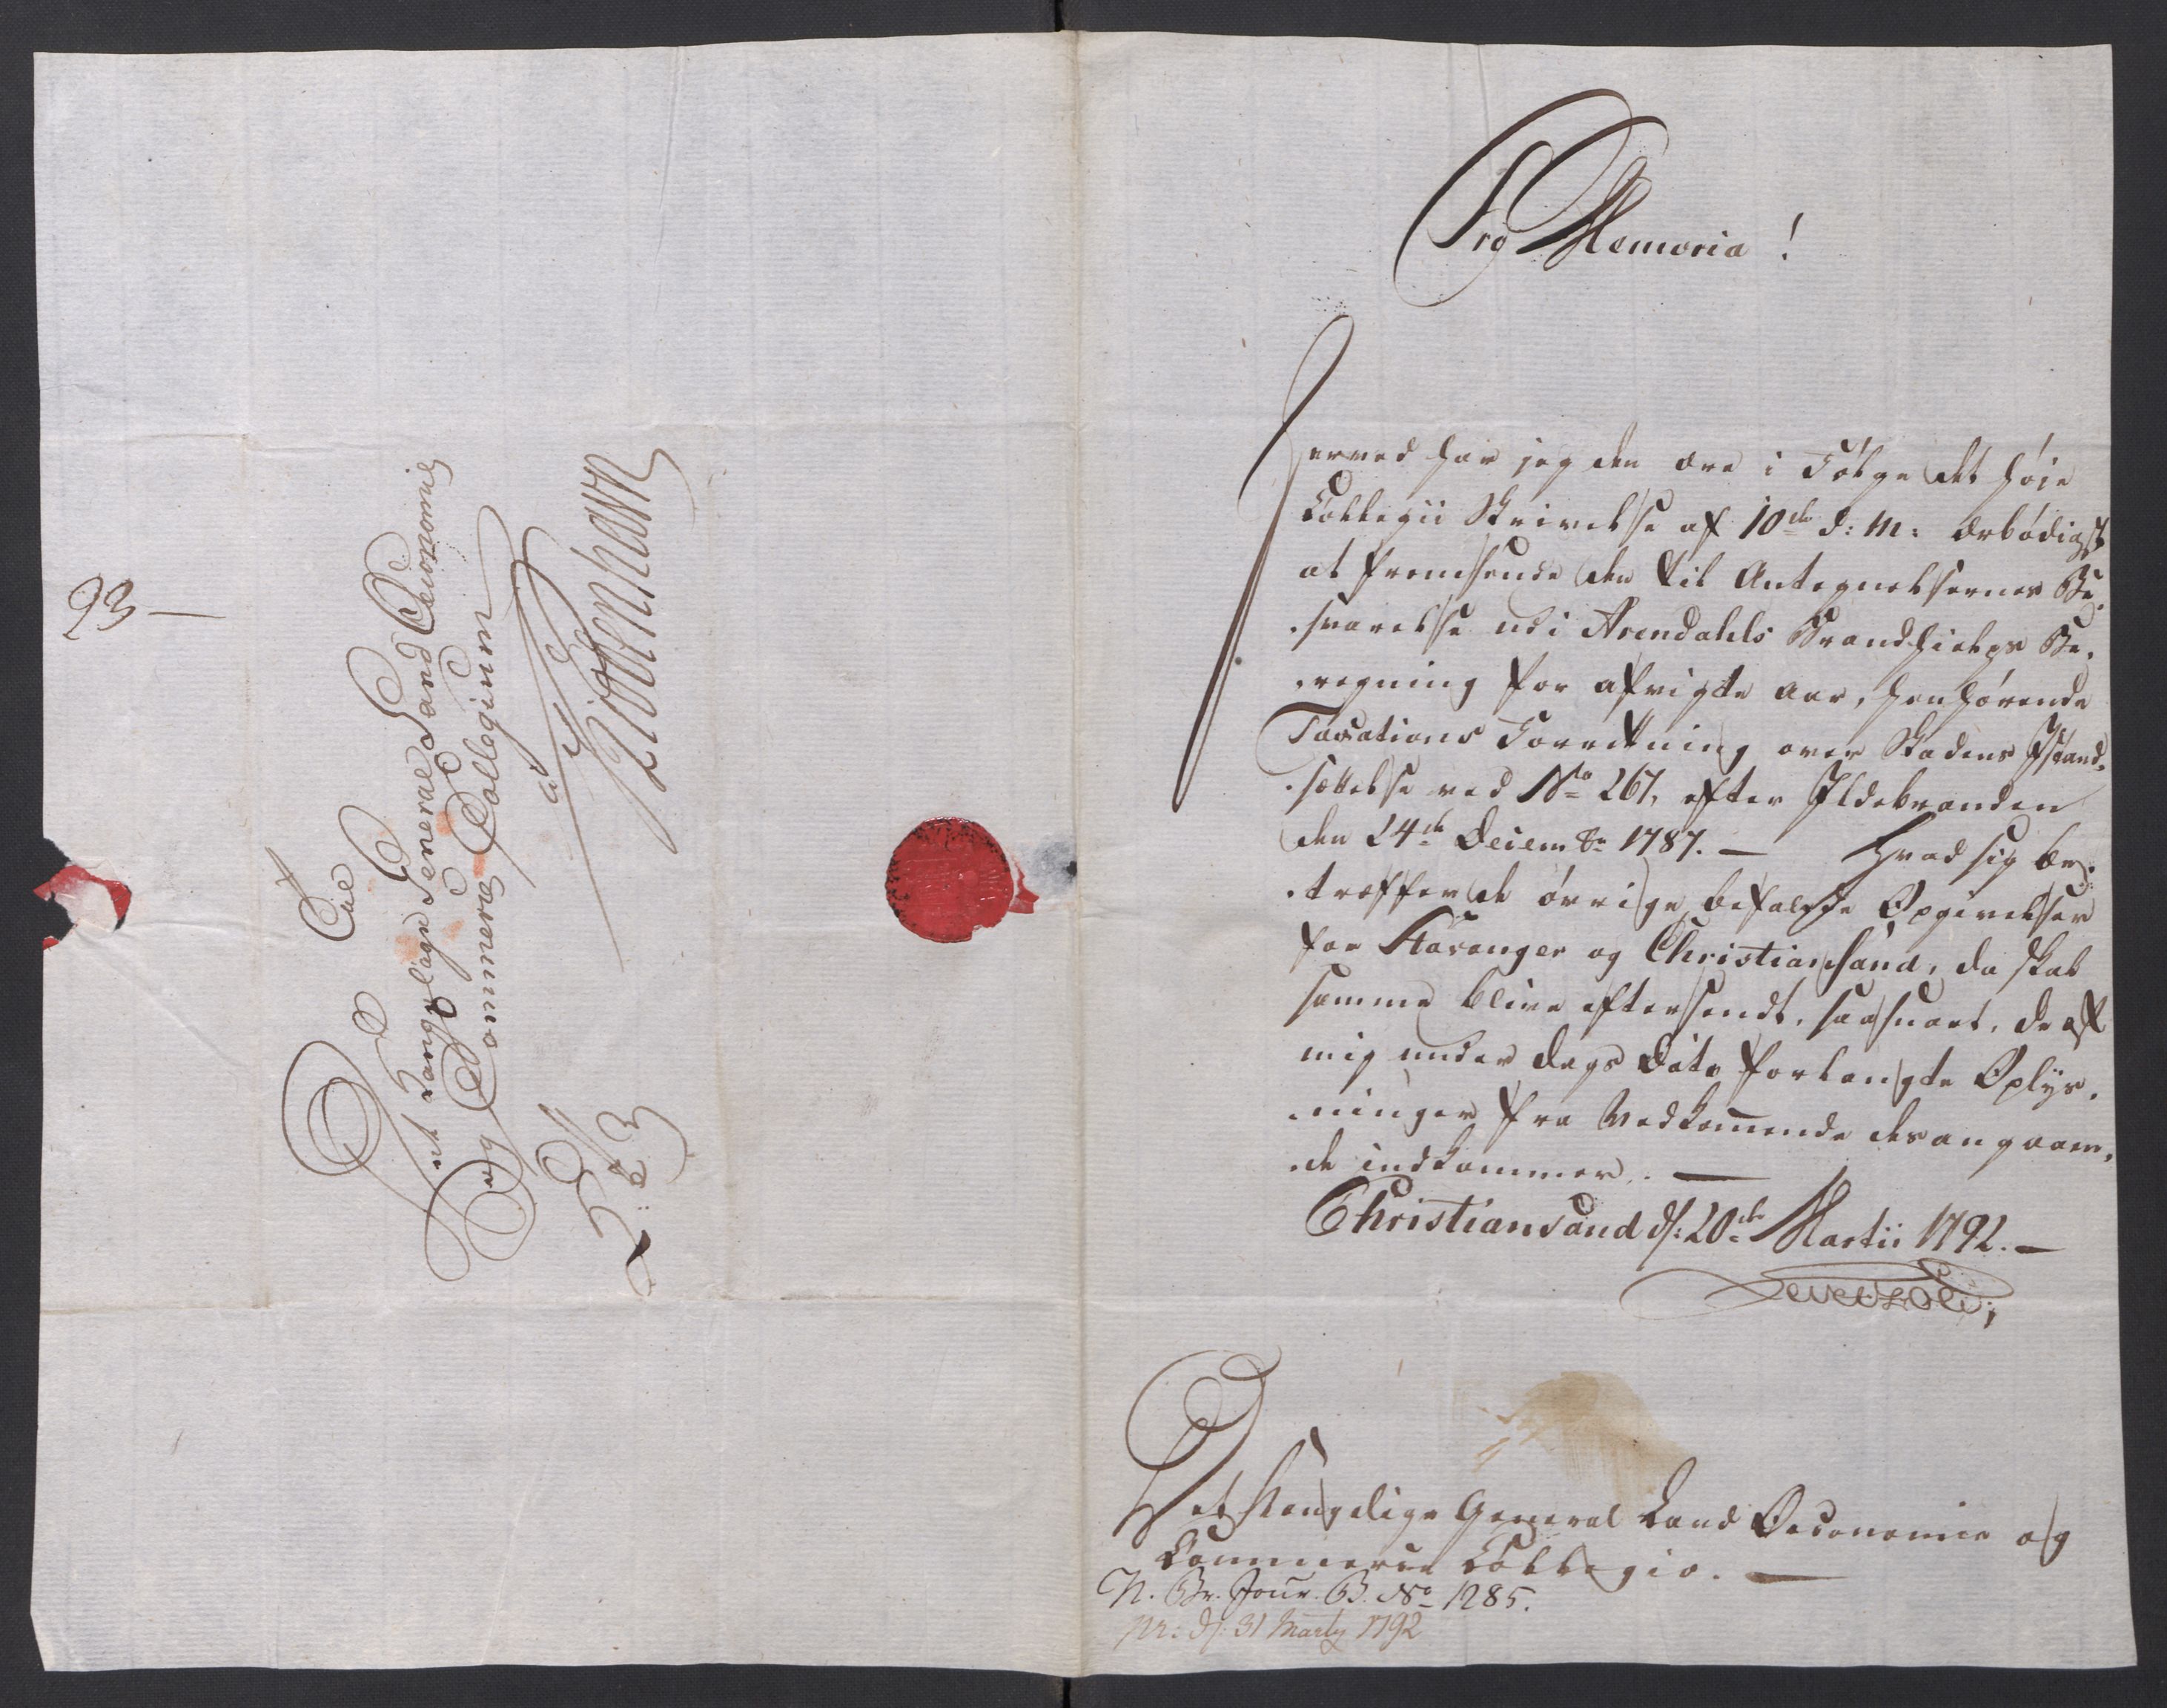 93 —
Til
Det Kongelige General Land Oeconomie
og Commerce Collegium
a
Kiöbenhavn
Pro Memoria!
Herved har jeg den ære i Fölge det höje
Collegii Skrivelse af 10de d: M: ærbödigst
at fremsende den til Antegnelsernes Be-
svarelse udi Arendahls Brandhielps Be-
regning for afvigte Aar, henhörende
Taxations Forretning over Skadens Istand-
sættelse ved No 267, efter Ildebranden
den 24de Decembr 1787. — Hvad sig be-
træffer de övrige befalede Opgivelser
for Stavanger og Christiansand, da skal
samme blive eftersendt, saasnart, de af
mig under Dags Dato forlangte Oplys-
ninger fra Vedkommende desangaaen-
de indkommer. —
Christiansand d: 20de Martii 1792. —
Det Kongelige General Land Oeconomie og
Commerce Collegio. —
N. Br. Jour. B. No 1285.
pr: d: 31 Marty 1792